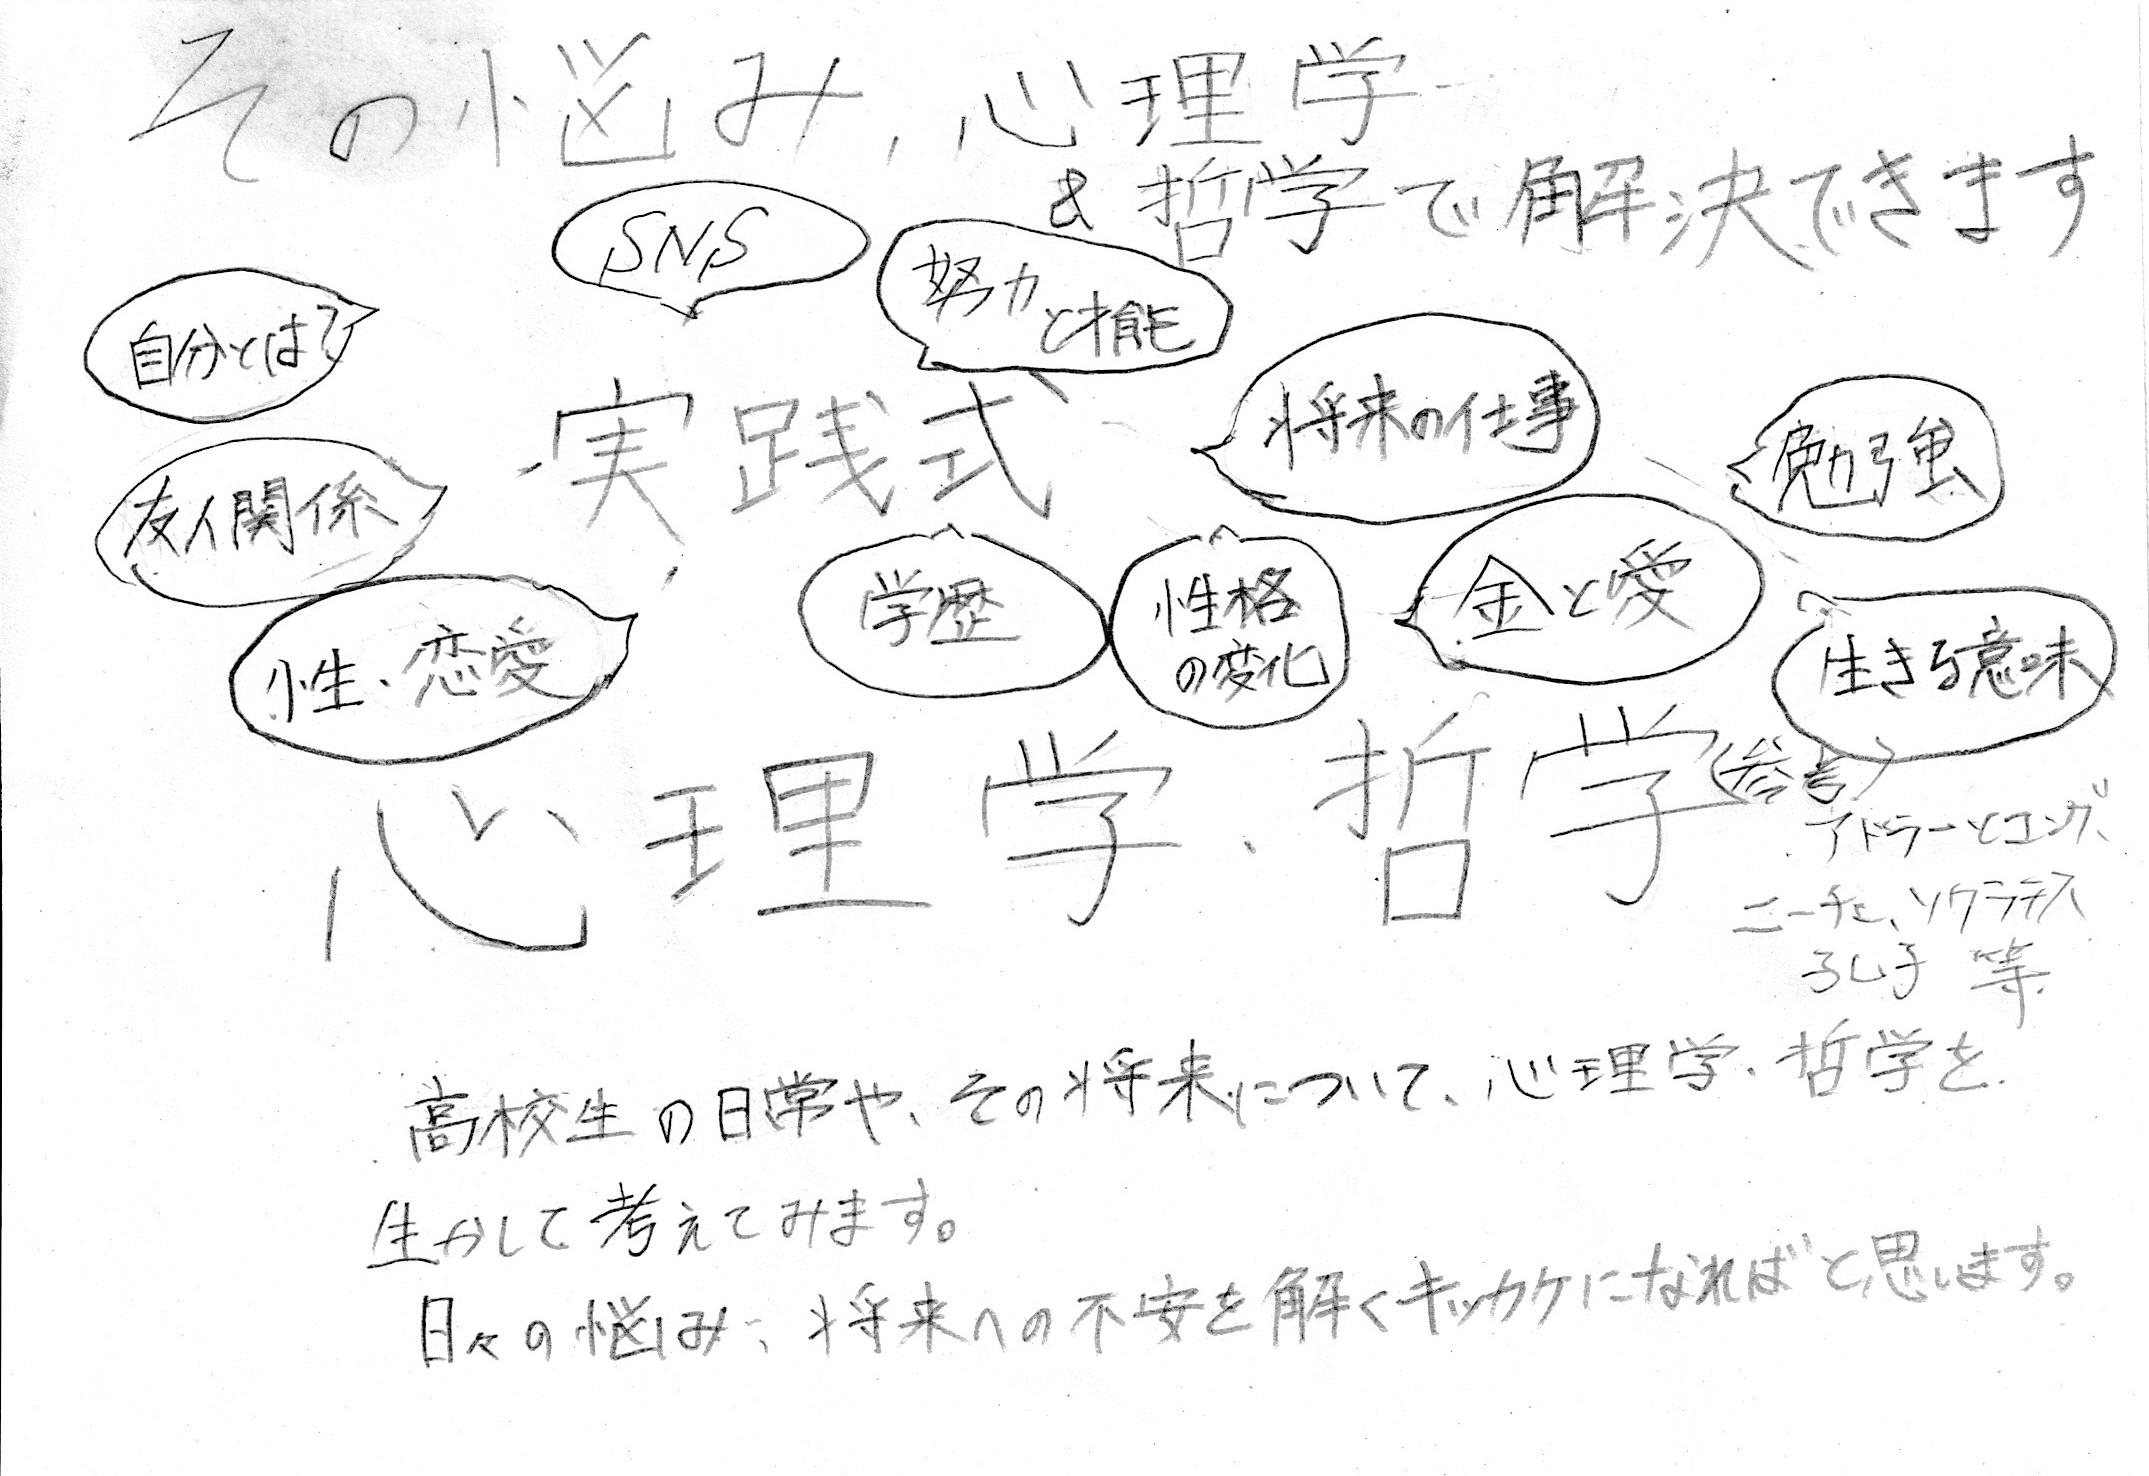 その悩み、心理学
&哲学で解決できます
SNS
努力
と才能
自分とは?
将来の仕事
勉強
実践式
友人関係
学歴
性格
の変化
金と愛
性、恋愛
生きる意味
心理学、哲学(参考)
アドラーとユング、
ニーチェ、ソクラテス
孔子 等
高校生の日常や、その将来について、心理学、哲学を
生かして考えてみます。
日々の悩み、将来への不安を解くキッカケになればと思います。